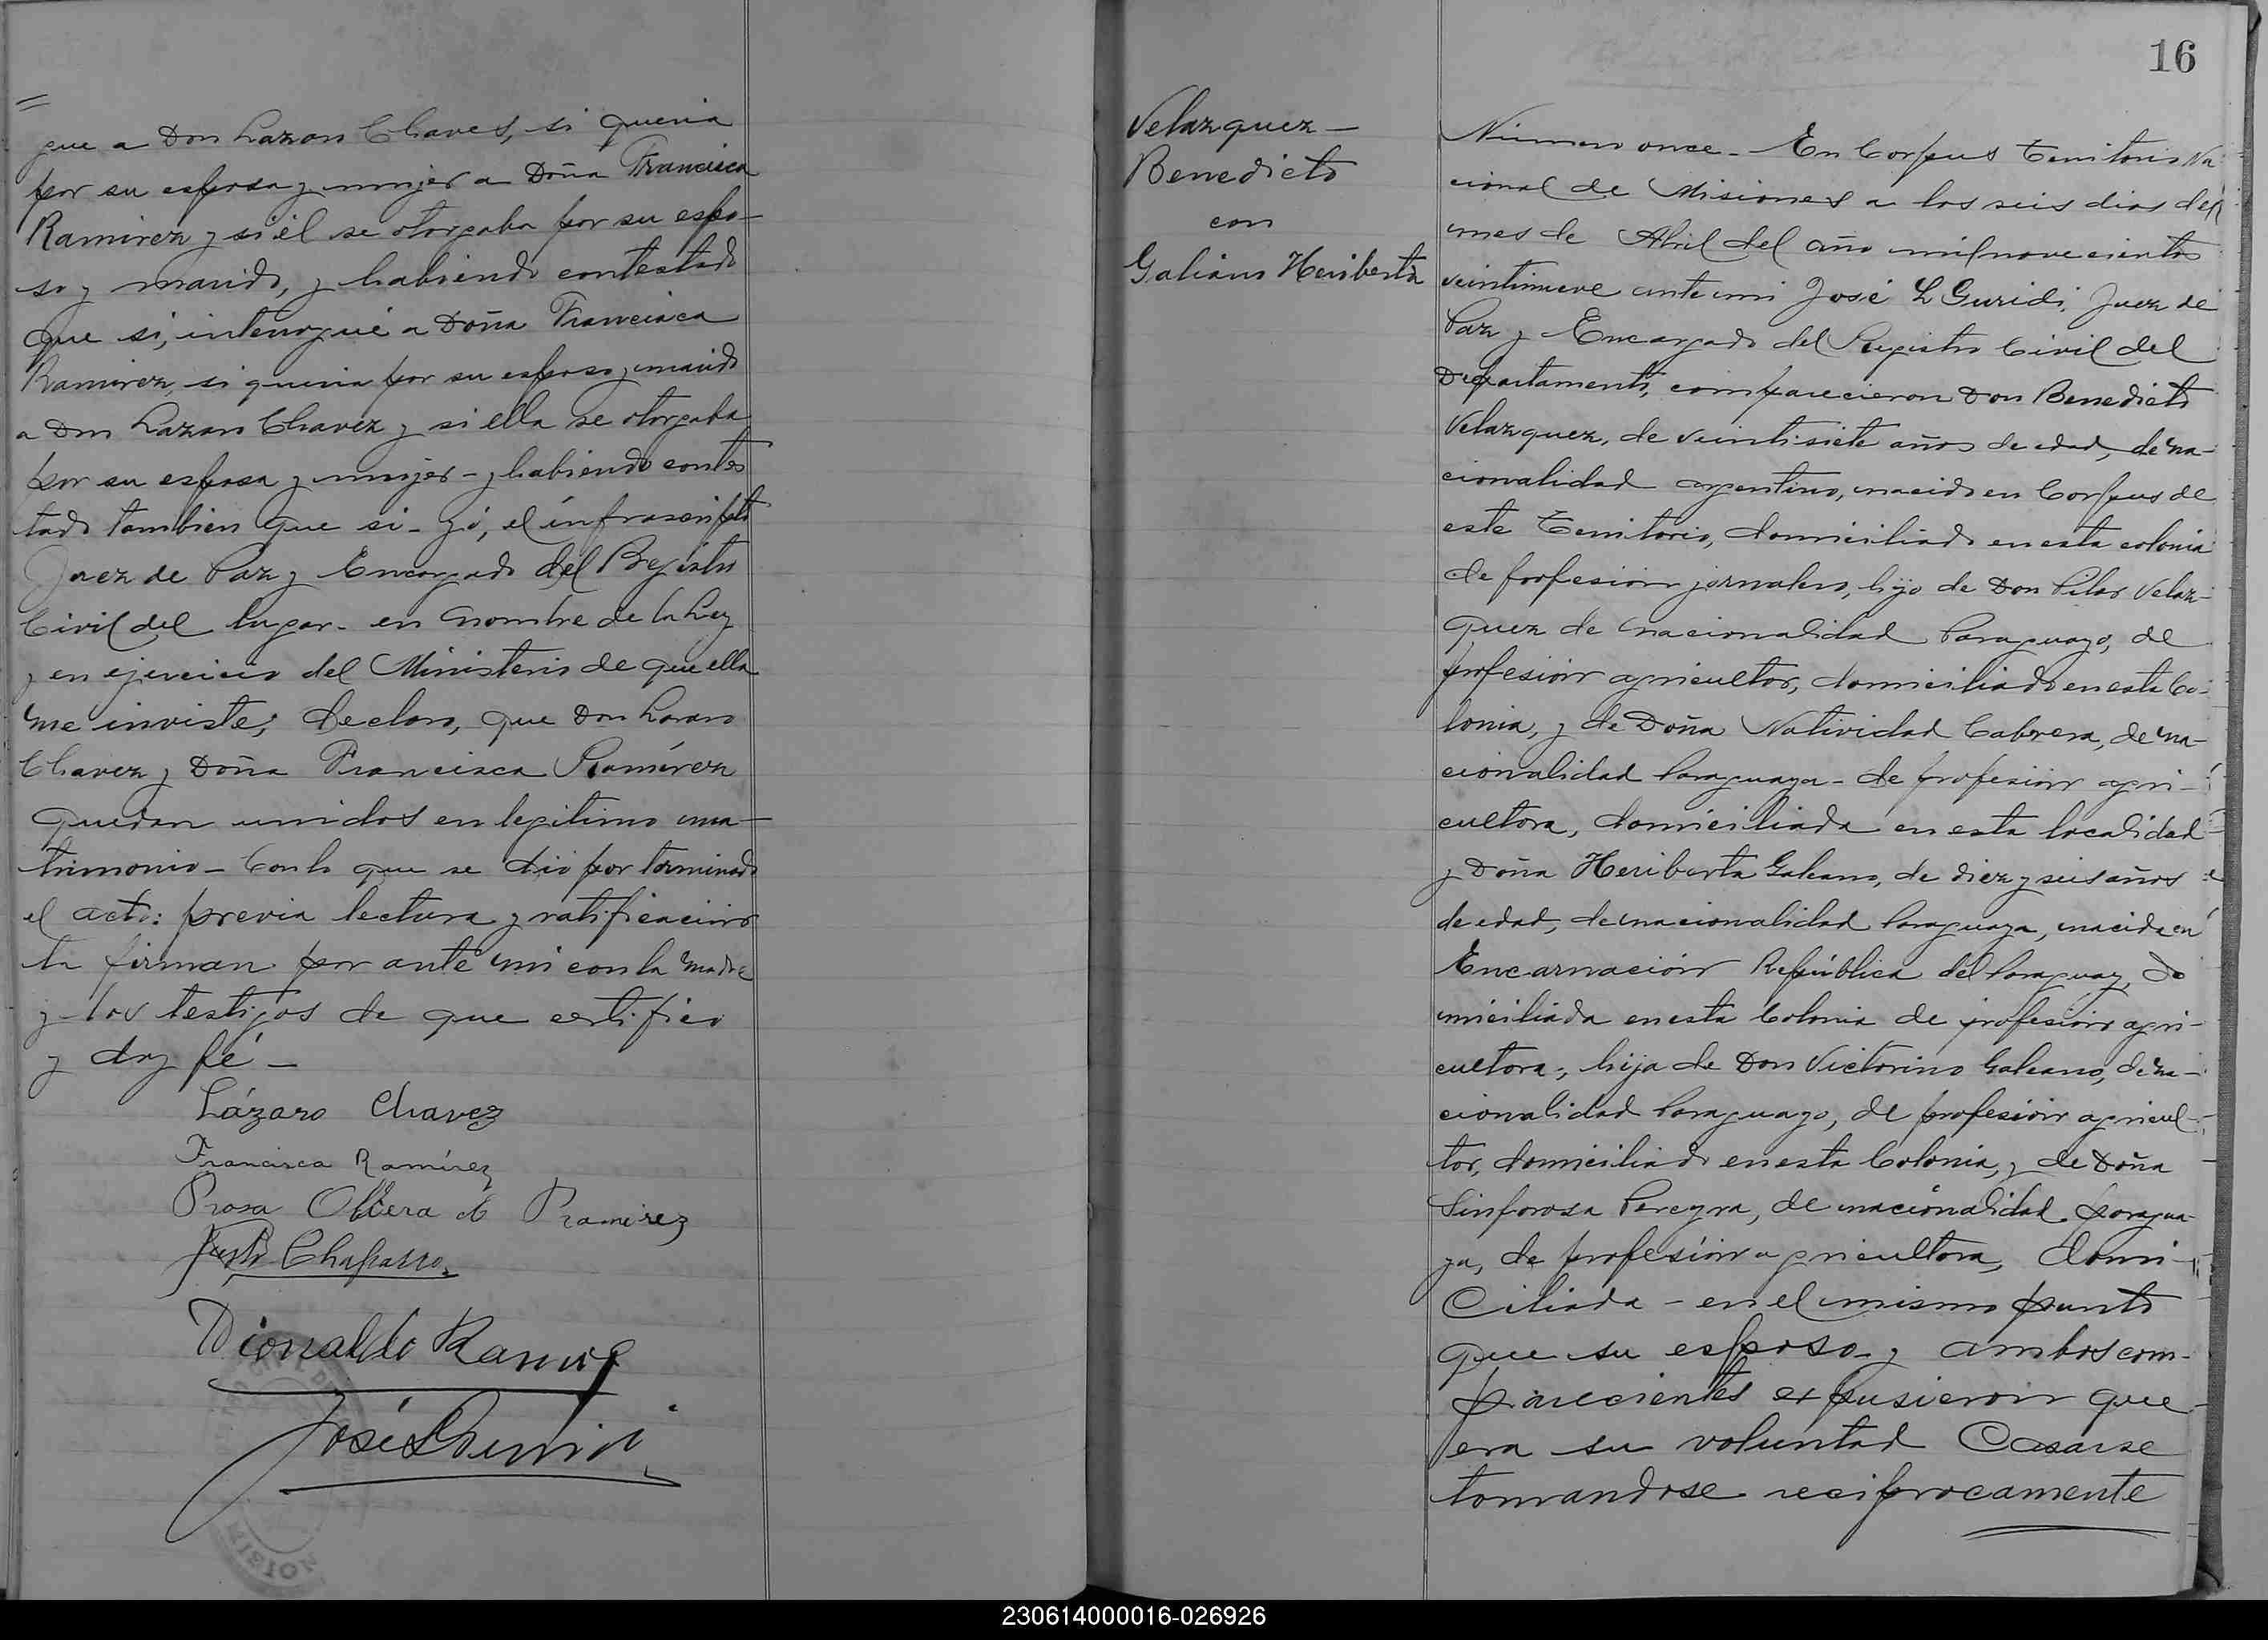 =
gue a Don Lazaro Chaves, si queria
por su esposa y mujer a Doña Francisca
Ramirez y si él se otorgaba por su espo-
so y marido, y habiendo contestado
que si, interrogué a Doña Francisca
Ramirez, si queria por su esposo y marido
a Don Lazaro Chavez y si ella se otorgaba
por su esposa y mujer - y habiendo contes
tado tambien que si - yó, el infrascripto
Juez de Paz y Encargado del Registro
Civil del lugar - en nombre de la Ley
y en ejercicio del Ministerio de que ella
me inviste, declaro, que Don Lazaro
Chavez y Doña Francisca Ramírez
quedan unidos en legitimo ma-
trimonio - Con lo que se dió por terminado
el acto: previa lectura y ratificación
la firman por ante mi con la madre
y los testigos de que certifico
y doy fé -
Lázaro Chavez
Francisca Ramírez
Rosa Olivera de Ramirez
Justo Chaparro
Dionaldo Ramirez
José L Guridi
16
Velazquez -
Benedicto
con
Galiano Heriberta
Número once - En Corpus Territorio Na
cional de Misiones a los seis dias del
mes de Abril del año mil nove cientos
veintinueve ante mi José L Guridi, Juez de
Paz y Encargado del Registro Civil del
Departamento, comparecieron Don Benedicto
Velazquez, de veintisiete años de edad, de na-
cionalidad argentino, nacido en Corpus de
este Territorio, domiciliado en esta colonia
de profesion jornalero, hijo de Don Pilar Velaz-
quez de nacionalidad Paraguayo, de
profesión agricultor, domiciliado en esta Co-
lonia, y de Doña Natividad Cabrera, de na-
cionalidad Paraguaya - de profesión agri-
cultora, domiciliada en esta localidad
y Doña Heriberta Galeano, de diez y seis años
de edad, de nacionalidad Paraguaya, nacida en
Encarnación República del Paraguay, do
miciliada en esta Colonia de profesión agri-
cultora; hija de Don Victorino Galeano, de na-
cionalidad Paraguayo, de profesión agricul-
tor, domiciliado en esta Colonia, y de Doña
Sinforosa Pereyra, de nacionalidad paragua-
ya, de profesión agricultora, domi-
ciliada - en el mismo punto
que su esposo y ambos com-
parecientes expusieron que
era su voluntad Casarse
tomandose reciprocamente
230614000016-026926